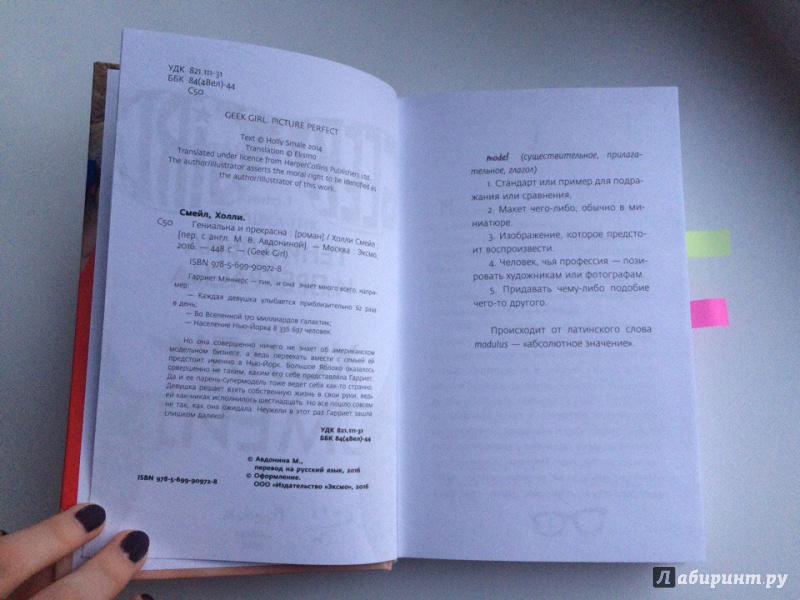 УДК 821.111-31
ББК 84(4Вел)-44
С50
GEEK GIRL. PICTURE PERFECT
Text © Holly Smale 2014
Translation © Eksmo
Translated under licence from HarperCollins Publishers Ltd.
The author/illustrator asserts the moral right to be identified as
the author/illustrator of this work.
Смейл, Холли.
С50 Гениальна и прекрасна : [роман] / Холли Смейл ;
[пер. с англ. М. В. Авдониной]. — Москва : Эксмо,
2016. — 448 с. — (Geek Girl).
ISBN 978-5-699-90972-8
Гарриет Мэннерс — гик, и она знает много всего, напри-
мер:
— Каждая девушка улыбается приблизительно 62 раза
в день;
— Во Вселенной 170 миллиардов галактик;
— Население Нью-Йорка 8 336 697 человек.
Но она совершенно ничего не знает об американском
модельном бизнесе, а ведь переехать вместе с семьей ей
предстоит именно в Нью-Йорк. Большое Яблоко оказалось
совершенно не таким, каким его себе представляла Гарриет.
Да и ее парень-супермодель тоже ведет себя как-то странно.
Девушка решает взять собственную жизнь в свои руки, ведь
ей как-никак исполнилось шестнадцать. Но все пошло совсем
не так, как она ожидала. Неужели в этот раз Гарриет зашла
слишком далеко?
УДК 821.111-31
ББК 84(4Вел)-44
© Авдонина М.,
перевод на русский язык, 2016
© Оформление.
ООО «Издательство «Эксмо», 2016
ISBN 978-5-699-90972-8
model (существительное, прилага-
тельное, глагол)
1. Стандарт или пример для подра-
жания или сравнения.
2. Макет чего-либо, обычно в ми-
ниатюре.
3. Изображение, которое предсто-
ит воспроизвести.
4. Человек, чья профессия — пози-
ровать художникам или фотографам.
5. Придавать чему-либо подобие
чего-то другого.
Происходит от латинского слова
modulus — «абсолютное значение».
Лабиринт.ру